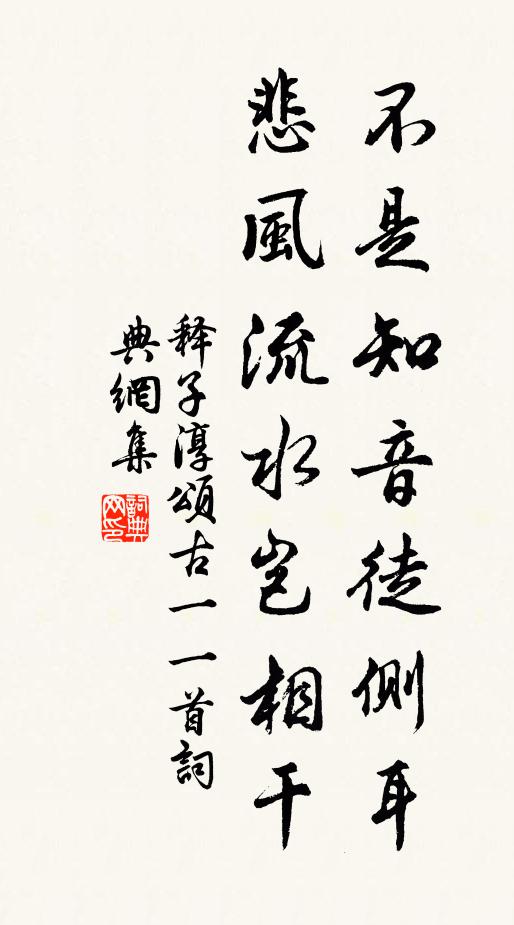 不是知音徒侧耳
悲風流水岂相干
释子淳頌古一一首詞
典網集
詞典网印